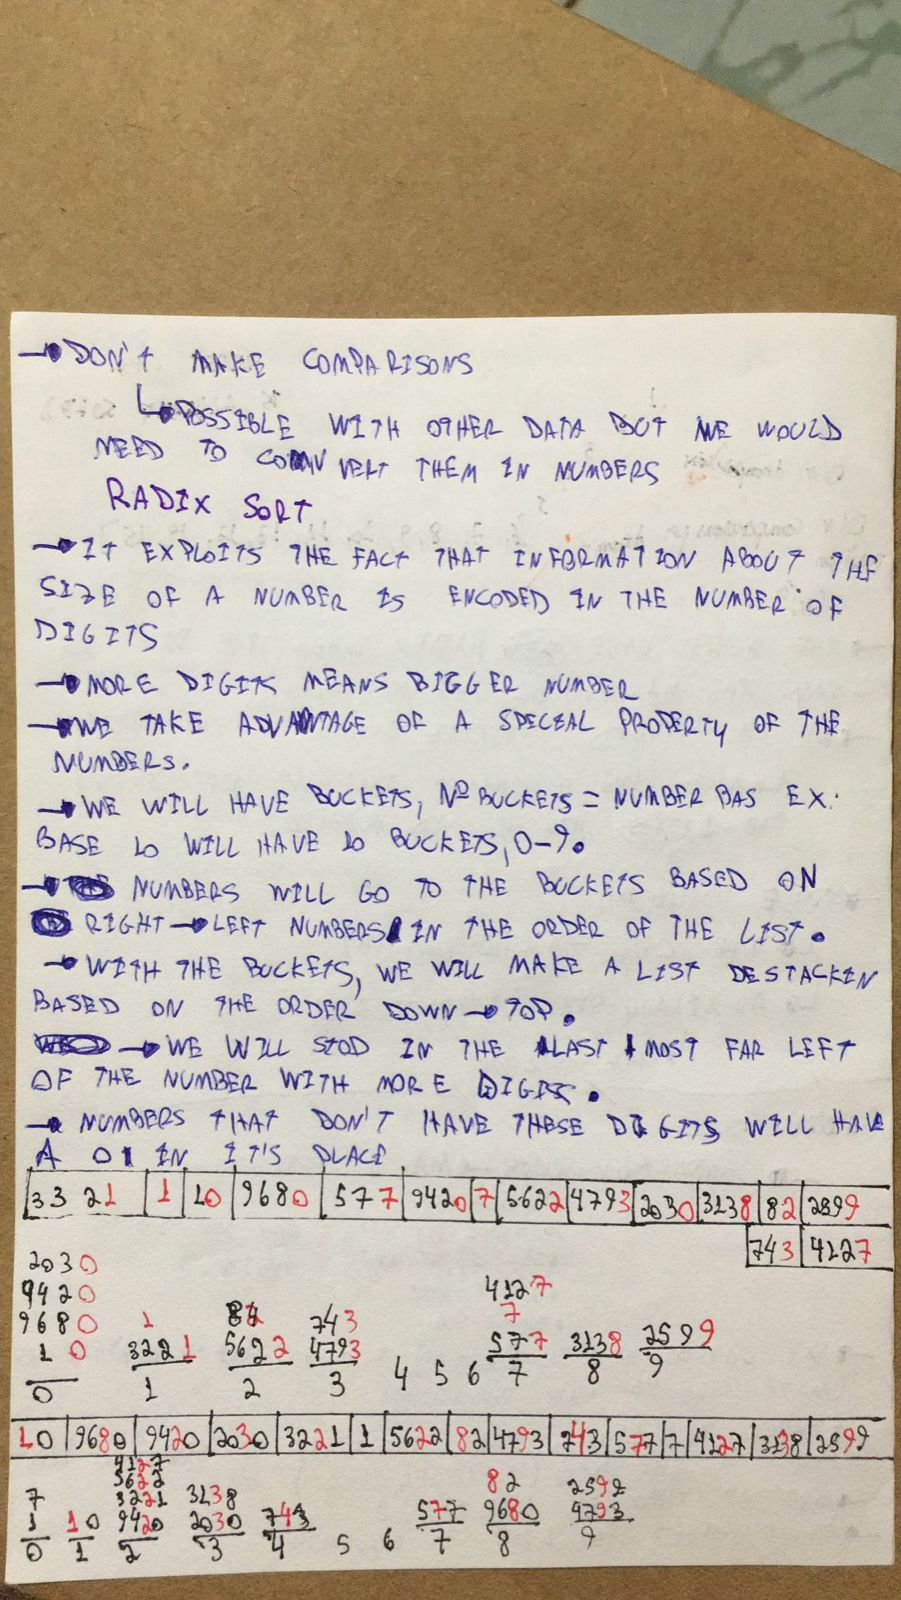 → DON'T MAKE COMPARISONS
↳ POSSIBLE WITH OTHER DATA BUT WE WOULD
NEED TO CONVERT THEM IN NUMBERS
RADIX SORT
→ IT EXPLOITS THE FACT THAT INFORMATION ABOUT THE
SIZE OF A NUMBER IS ENCODED IN THE NUMBER OF
DIGITS
→ MORE DIGITS MEANS BIGGER NUMBER
→ WE TAKE ADVANTAGE OF A SPECIAL PROPERTY OF THE
NUMBERS.
→ WE WILL HAVE BUCKETS, Nº BUCKETS = NUMBER BAS EX:
BASE 10 WILL HAVE 10 BUCKETS, 0-9.
→ NUMBERS WILL GO TO THE BUCKETS BASED ON
RIGHT → LEFT NUMBERS IN THE ORDER OF THE LIST.
→ WITH THE BUCKETS, WE WILL MAKE A LIST DESTACKEN
BASED ON THE ORDER DOWN → TOP.
→ WE WILL STOD IN THE LAST MOST FAR LEFT
OF THE NUMBER WITH MORE DIGITS.
→ NUMBERS THAT DON'T HAVE THESE DIGITS WILL HAVE
A 0 IN IT'S PLACE
3321 1 10 9680 577 9420 7 5622 4793 2030 3138 82 2599
743 4127
2030
9420 4127
9680 1 82 743 7
10 3221 5622 4793 577 3138 2599
0 1 2 3 4 5 6 7 8 9
10 9680 9420 2030 3221 1 5622 82 4793 743 577 7 4127 3138 2599
4127
5622
7 3221 3138 82 2599
1 10 9420 2030 743 577 9680 4793
0 1 2 3 4 5 6 7 8 9